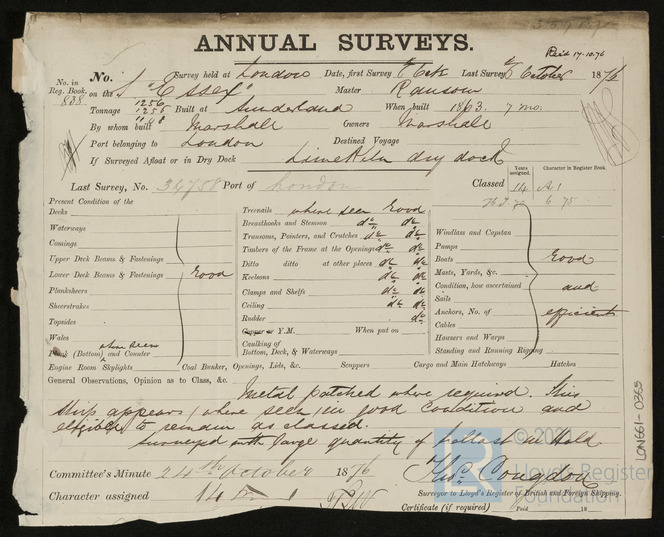 ANNUAL SURVEYS.
Paid 17-10-76
No. in Reg. Book. 838
No. Survey held at London Date, first Survey Oct. Last Survey October 1876
on the "Essex" Master Ransom
Tonnage 1256 1255 Built at Sunderland When built 1863. 7 mo.
By whom built Marshall Owners Marshall
Port belonging to London Destined Voyage
If Surveyed Afloat or in Dry Dock Limekiln dry dock
Years assigned. Character in Register Book.
Last Survey, No. 34758 Port of London Classed 14 A 1
6 75
Present Condition of the
Decks
Waterways
Comings
Upper Deck Beams & Fastenings
Lower Deck Beams & Fastenings Good
Planksheers
Sheerstrakes
Topsides
Wales
where seen
Plank (Bottom) and Counter
Engine Room Skylights
Treenails where seen Good
Breasthooks and Stemson do do
Transoms, Pointers, and Crutches do do
Timbers of the Frame at the Openings do do
Ditto ditto at other places do do
Keelsons do do
Clamps and Shelfs do do
Ceiling do do
Rudder do
Copper or Y.M. When put on
Caulking of Bottom, Deck, & Waterways
Coal Bunker, Openings, Lids, &c. Scuppers Cargo and Main Hatchways Hatches
Windlass and Capstan
Pumps
Boats Good
Masts, Yards, &c.
Condition, how ascertained and
Sails
Anchors, No. of efficient
Cables
Hawsers and Warps
Standing and Running Rigging
General Observations, Opinion as to Class, &c.
Metal patched where required. This
Ship appears, where seen, in good condition and
eligible to remain as classed.
Surveyed with large quantity of ballast in Hold
Committee's Minute 24th October 1876
Thos. Congdon
Surveyor to Lloyd's Register of British and Foreign Shipping.
Character assigned 14 1
Certificate (if required) Paid 18
LON661-0365
© 2021
Lloyd's Register
Foundation